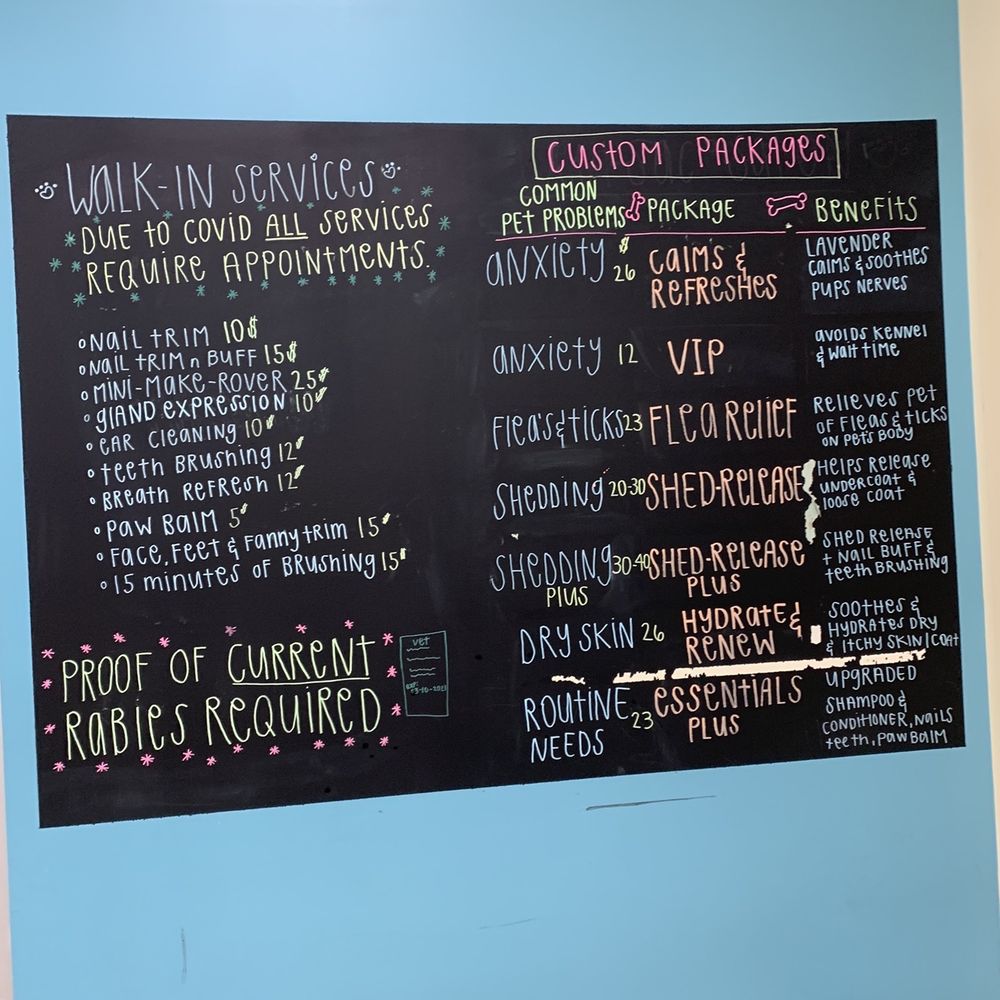 WALK-IN SERVICES
DUE TO COVID ALL SERVICES
REQUIRE APPOINTMENTS.
NAIL TRIM 10$
NAIL TRIM n BUFF 15$
MINI-MAKE-ROVER 25$
GLAND EXPRESSION 10$
EAR CLEANING 10$
TEETH BRUSHING 12$
BREATH REFRESH 12$
PAW BALM 5$
FACE, FEET & FANNY TRIM 15$
15 MINUTES OF BRUSHING 15$
PROOF OF CURRENT
RABIES REQUIRED
vet
CUSTOM PACKAGES
COMMON
PET PROBLEMS PACKAGE BENEFITS
ANXIETY $26 CALMS &
REFRESHES
LAVENDER
CALMS & SOOTHES
PUPS NERVES
ANXIETY 12 VIP
AVOIDS KENNEL
& WAIT TIME
FLEA'S & TICKS 23 FLEA RELIEF
RELIEVES PET
OF FLEAS & TICKS
ON PETS BODY
SHEDDING 20-30 SHED-RELEASE
HELPS RELEASE
UNDERCOAT &
LOOSE COAT
SHEDDING 30-40 SHED-RELEASE
PLUS PLUS
SHED RELEASE
+ NAIL BUFF &
TEETH BRUSHING
DRY SKIN 26 HYDRATE &
RENEW
SOOTHES &
HYDRATES DRY
& ITCHY SKIN/COAT
ROUTINE 23 ESSENTIALS
NEEDS PLUS
UPGRADED
SHAMPOO &
CONDITIONER, NAILS
TEETH, PAW BALM